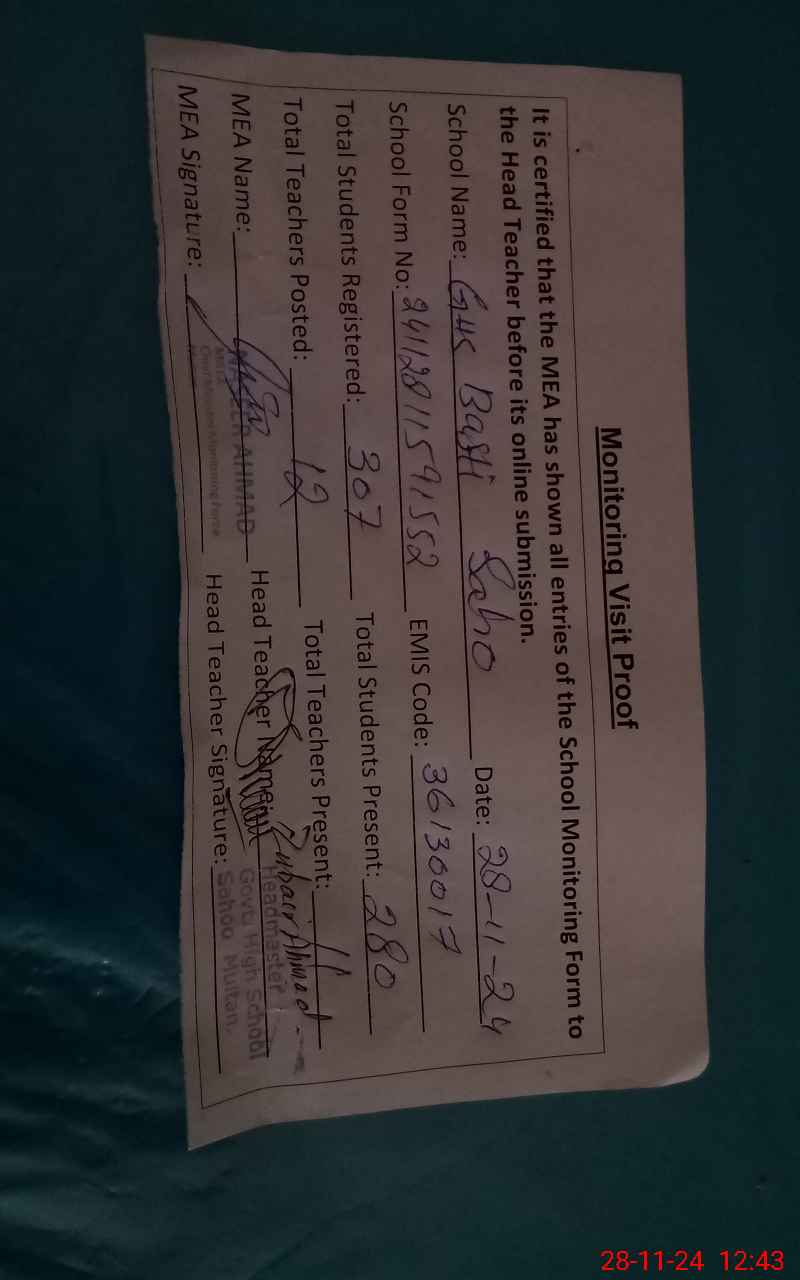 Monitoring Visit Proof
It is certified that the MEA has shown all entries of the School Monitoring Form to
the Head Teacher before its online submission.
School Name: GHS Basti Saho Date: 28-11-24
School Form No: 24112811591552 EMIS Code: 36130017
Total Students Registered: 307 Total Students Present: 280
Total Teachers Posted: 12 Total Teachers Present: 11
MEA Name: AHMAD Head Teacher Name: Zubair Ahmad
Headmaster
Govt: High School
Sahoo Multan.
MEA Signature: Head Teacher Signature:
Chief Minister Monitoring Force
28-11-24 12:43